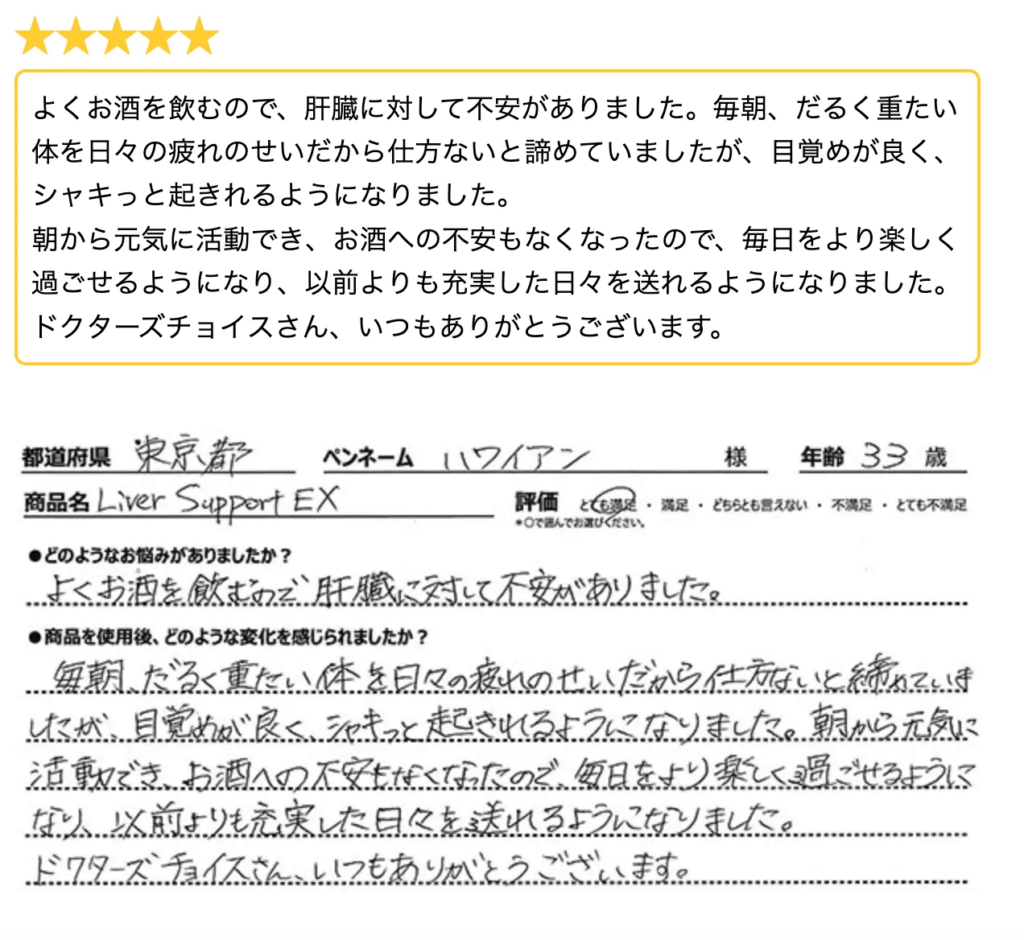 よくお酒を飲むので、肝臓に対して不安がありました。毎朝、だるく重たい
体を日々の疲れのせいだから仕方ないと諦めていましたが、目覚めが良く、
シャキっと起きれるようになりました。
朝から元気に活動でき、お酒への不安もなくなったので、毎日をより楽しく
過ごせるようになり、以前よりも充実した日々を送れるようになりました。
ドクターズチョイスさん、いつもありがとうございます。
都道府県 東京都 ペンネーム ハワイアン 様 年齢 33 歳
商品名 Liver Support EX 評価 とても満足・満足・どちらとも言えない・不満足・とても不満足
*○で囲んでお選びください。
●どのようなお悩みがありましたか？
よくお酒を飲むので肝臓に対して不安がありました。
●商品を使用後、どのような変化を感じられましたか？
毎朝、だるく重たい体を日々の疲れのせいだから仕方ないと締めていま
したが、目覚めが良く、シャキっと起きれるようになりました。朝から元気に
活動でき、お酒への不安もなくなったので、毎日をより楽しく過ごせるように
なり、以前よりも充実した日々を送れるようになりました。
ドクターズチョイスさん、いつもありがとうございます。